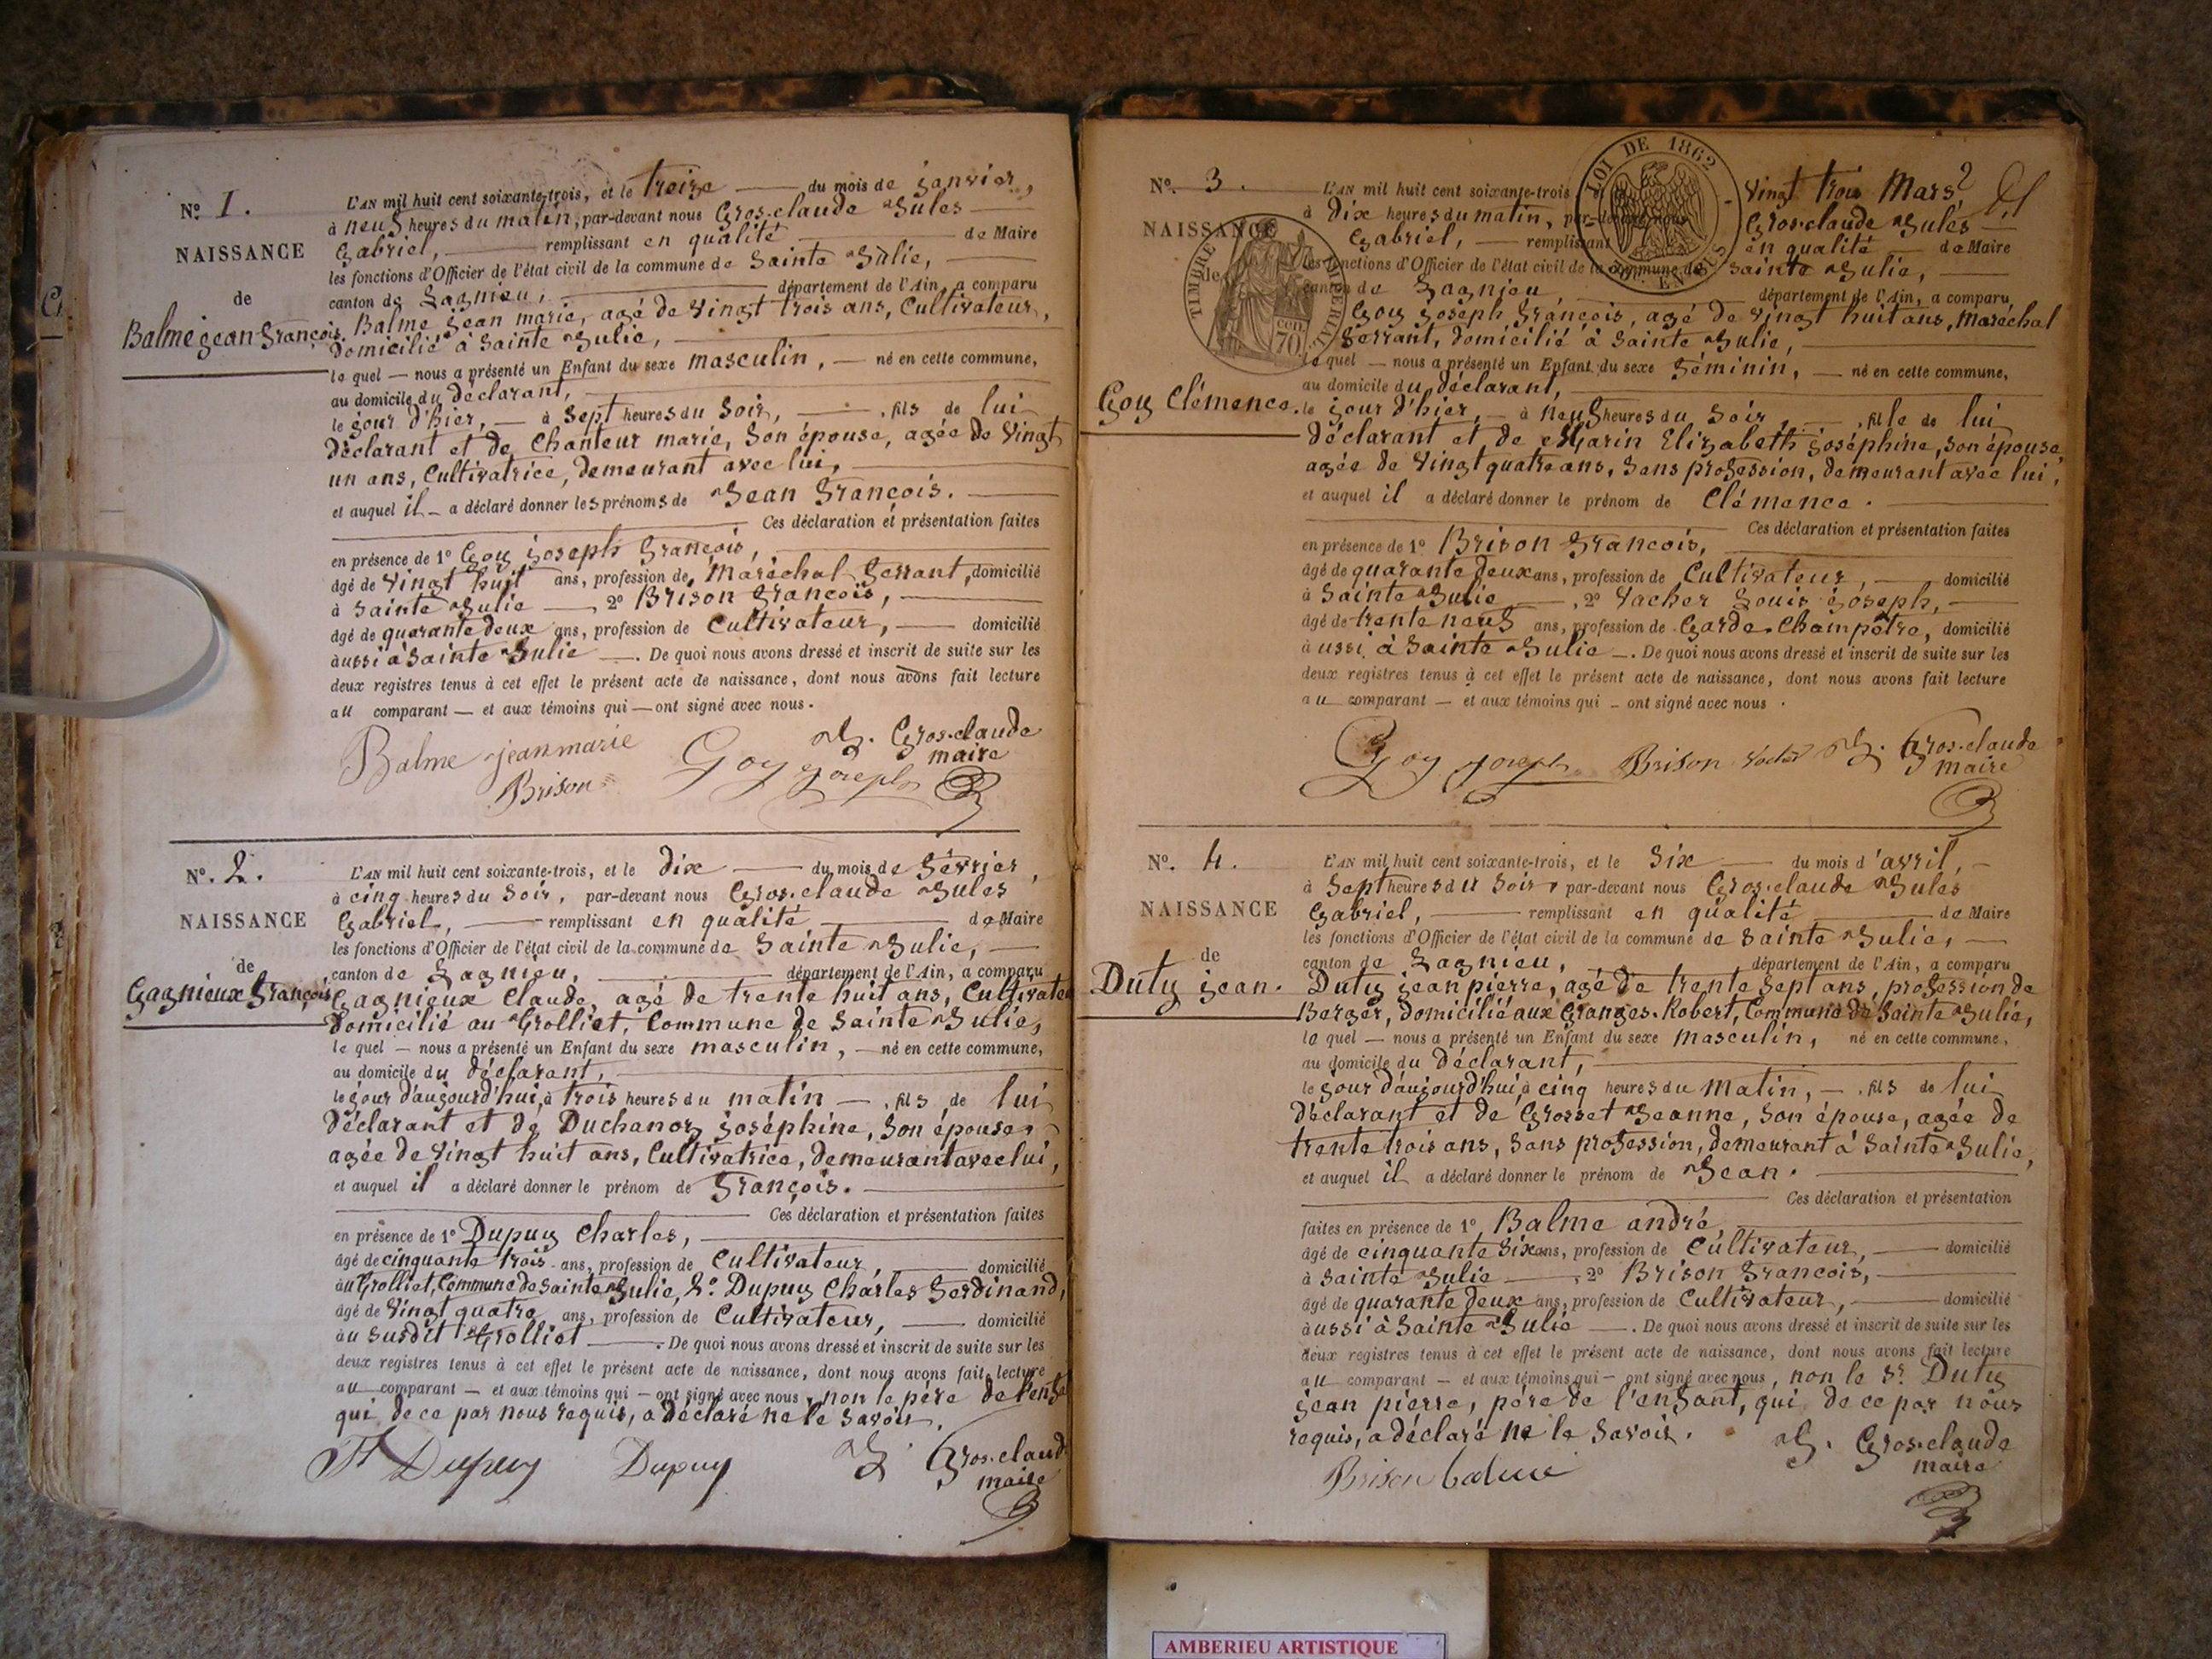 No. 1.
NAISSANCE
de
Balme jean François.
L'AN mil huit cent soixante-trois, et le treize du mois de janvier,
à neuf heures du matin, par-devant nous Gros-claude Jules
Gabriel, remplissant en qualité de Maire
les fonctions d'Officier de l'état civil de la commune de Sainte Julie,
canton de Lagnieu, département de l'Ain, a comparu
Balme jean marie, agé de vingt trois ans, Cultivateur,
domicilié à Sainte Julie,
le quel — nous a présenté un Enfant du sexe masculin, — né en cette commune,
au domicile du déclarant,
le jour d'hier, — à sept heures du soir, fils de lui
déclarant et de Chanteur marie, son épouse, agée de vingt
un ans, Cultivatrice, demeurant avec lui,
et auquel il — a déclaré donner les prénoms de Jean François.
Ces déclaration et présentation faites
en présence de 1º Goy joseph François,
âgé de vingt huit ans, profession de Maréchal ferrant, domicilié
à Sainte Julie, 2º Brison François,
âgé de quarante deux ans, profession de Cultivateur, domicilié
aussi à Sainte Julie. De quoi nous avons dressé et inscrit de suite sur les
deux registres tenus à cet effet le présent acte de naissance, dont nous avons fait lecture
au comparant — et aux témoins qui — ont signé avec nous.
Balme jean marie
Brison
Goy joseph
J. G. Gros-claude
maire
No. 2.
NAISSANCE
de
Gagnieux François
L'AN mil huit cent soixante-trois, et le dix du mois de février,
à cinq heures du soir, par-devant nous Gros-claude Jules
Gabriel, remplissant en qualité de Maire
les fonctions d'Officier de l'état civil de la commune de Sainte Julie,
canton de Lagnieu, département de l'Ain, a comparu
Gagnieux Claude, agé de trente huit ans, Cultivateur
domicilié au Trolliet, Commune de Sainte Julie,
le quel — nous a présenté un Enfant du sexe masculin, — né en cette commune,
au domicile du déclarant,
le jour d'aujourd'hui, à trois heures du matin — , fils de lui
déclarant et de Duchanoy joséphine, son épouse,
agée de vingt huit ans, Cultivatrice, demeurant avec lui,
et auquel il a déclaré donner le prénom de François.
Ces déclaration et présentation faites
en présence de 1º Dupuy Charles,
âgé de cinquante trois ans, profession de Cultivateur, domicilié
au Trolliet, Commune de Sainte Julie, 2º. Dupuy Charles Ferdinand,
âgé de vingt quatre ans, profession de Cultivateur, domicilié
au susdit Trolliet. De quoi nous avons dressé et inscrit de suite sur les
deux registres tenus à cet effet le présent acte de naissance, dont nous avons fait lecture
au comparant — et aux témoins qui — ont signé avec nous, non le père de l'enf
qui, de ce par nous requis, a déclaré ne le savoir.
Ft Dupuy
Dupuy
J. G. Gros-claude
maire
No. 3.
NAISSANCE
de
Goy Clémence.
TIMBRE IMPERIAL
70 cen
LOI DE 1862
EN SUS
L'AN mil huit cent soixante-trois vingt trois Mars
à dix heures du matin, par-devant nous Gros-claude Jules
Gabriel, — remplissant en qualité — de Maire
les fonctions d'Officier de l'état civil de la commune de Sainte Julie,
canton de Lagnieu, département de l'Ain, a comparu
Goy joseph François, agé de vingt huit ans, Maréchal
ferrant, domicilié à Sainte Julie,
le quel — nous a présenté un Enfant du sexe féminin, — né en cette commune,
au domicile du déclarant,
le jour d'hier, — à neuf heures du soir, fille de lui
déclarant et de Marin Elizabeth joséphine, son épouse,
agée de vingt quatre ans, sans profession, demeurant avec lui,
et auquel il a déclaré donner le prénom de Clémence.
Ces déclaration et présentation faites
en présence de 1º Brison François,
âgé de quarante deux ans, profession de Cultivateur, domicilié
à Sainte Julie, 2º Vacher Louis joseph,
âgé de trente neuf ans, profession de Garde-Champêtre, domicilié
aussi à Sainte Julie —. De quoi nous avons dressé et inscrit de suite sur les
deux registres tenus à cet effet le présent acte de naissance, dont nous avons fait lecture
au comparant — et aux témoins qui — ont signé avec nous.
Goy joseph Brison Vacher J. G. Gros-claude
maire
No. 4.
NAISSANCE
de
Duty jean.
L'AN mil huit cent soixante-trois, et le six du mois d'avril,
à sept heures du soir, par-devant nous Gros-claude Jules
Gabriel, remplissant en qualité de Maire
les fonctions d'Officier de l'état civil de la commune de Sainte Julie,
canton de Lagnieu, département de l'Ain, a comparu
Duty jean pierre, agé de trente sept ans, profession de
Berger, domicilié aux Granges-Robert, Commune de Sainte Julie,
le quel — nous a présenté un Enfant du sexe masculin, né en cette commune,
au domicile du déclarant,
le jour d'aujourd'hui, à cinq heures du matin, — , fils de lui
déclarant et de Grosset Jeanne, son épouse, agée de
trente trois ans, sans profession, demeurant à Sainte Julie,
et auquel il a déclaré donner le prénom de Jean.
Ces déclaration et présentation
faites en présence de 1º Balme andré,
âgé de cinquante six ans, profession de Cultivateur, domicilié
à Sainte Julie, 2º Brison François,
âgé de quarante deux ans, profession de Cultivateur, domicilié
aussi à Sainte Julie. De quoi nous avons dressé et inscrit de suite sur les
deux registres tenus à cet effet le présent acte de naissance, dont nous avons fait lecture
au comparant — et aux témoins qui — ont signé avec nous, non le Sr. Duty
jean pierre, père de l'enfant, qui de ce par nous
requis, a déclaré ne le savoir.
Brison balme
J. G. Gros-claude
maire
AMBERIEU ARTISTIQUE